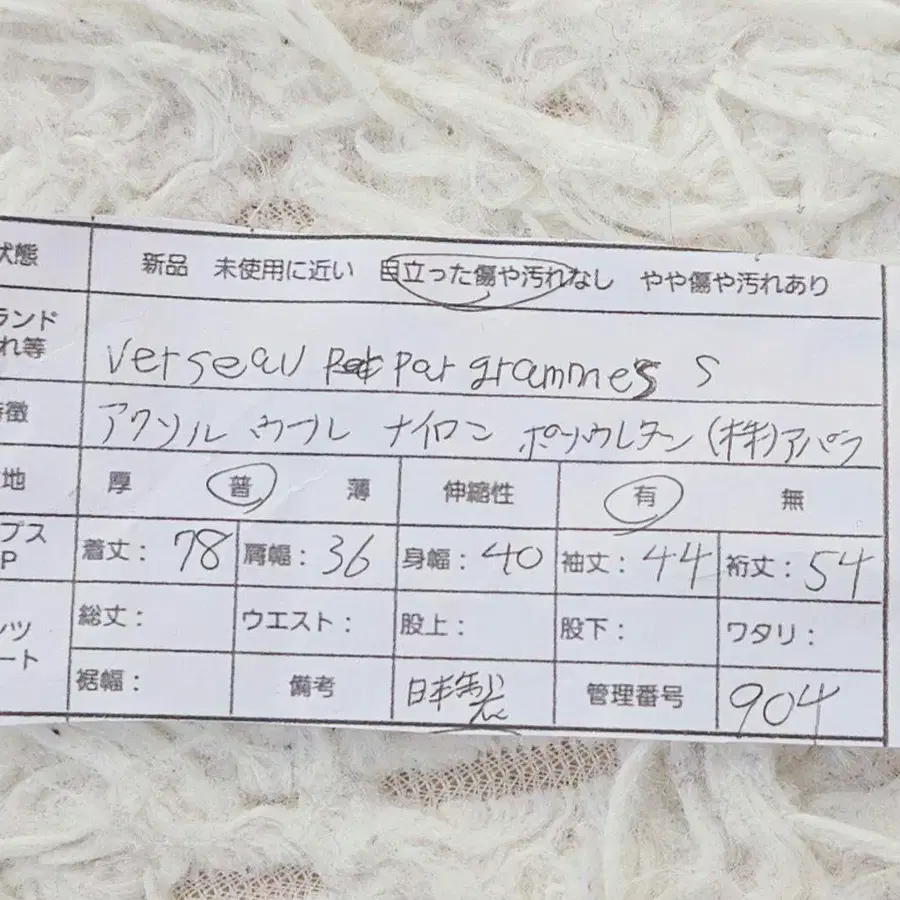 状態 新品 未使用に近い 目立った傷や汚れなし やや傷や汚れあり
ランド
れ等 Verseau Par grammes S
特徴 アクリル ウール ナイロン ポリウレタン (株)アパラ
地 厚 普 薄 伸縮性 有 無
プス
P 着丈: 78 肩幅: 36 身幅: 40 袖丈: 44 裄丈: 54
ンツ
ート 総丈: ウエスト: 股上: 股下: ワタリ:
裾幅: 備考 日本製 管理番号 904